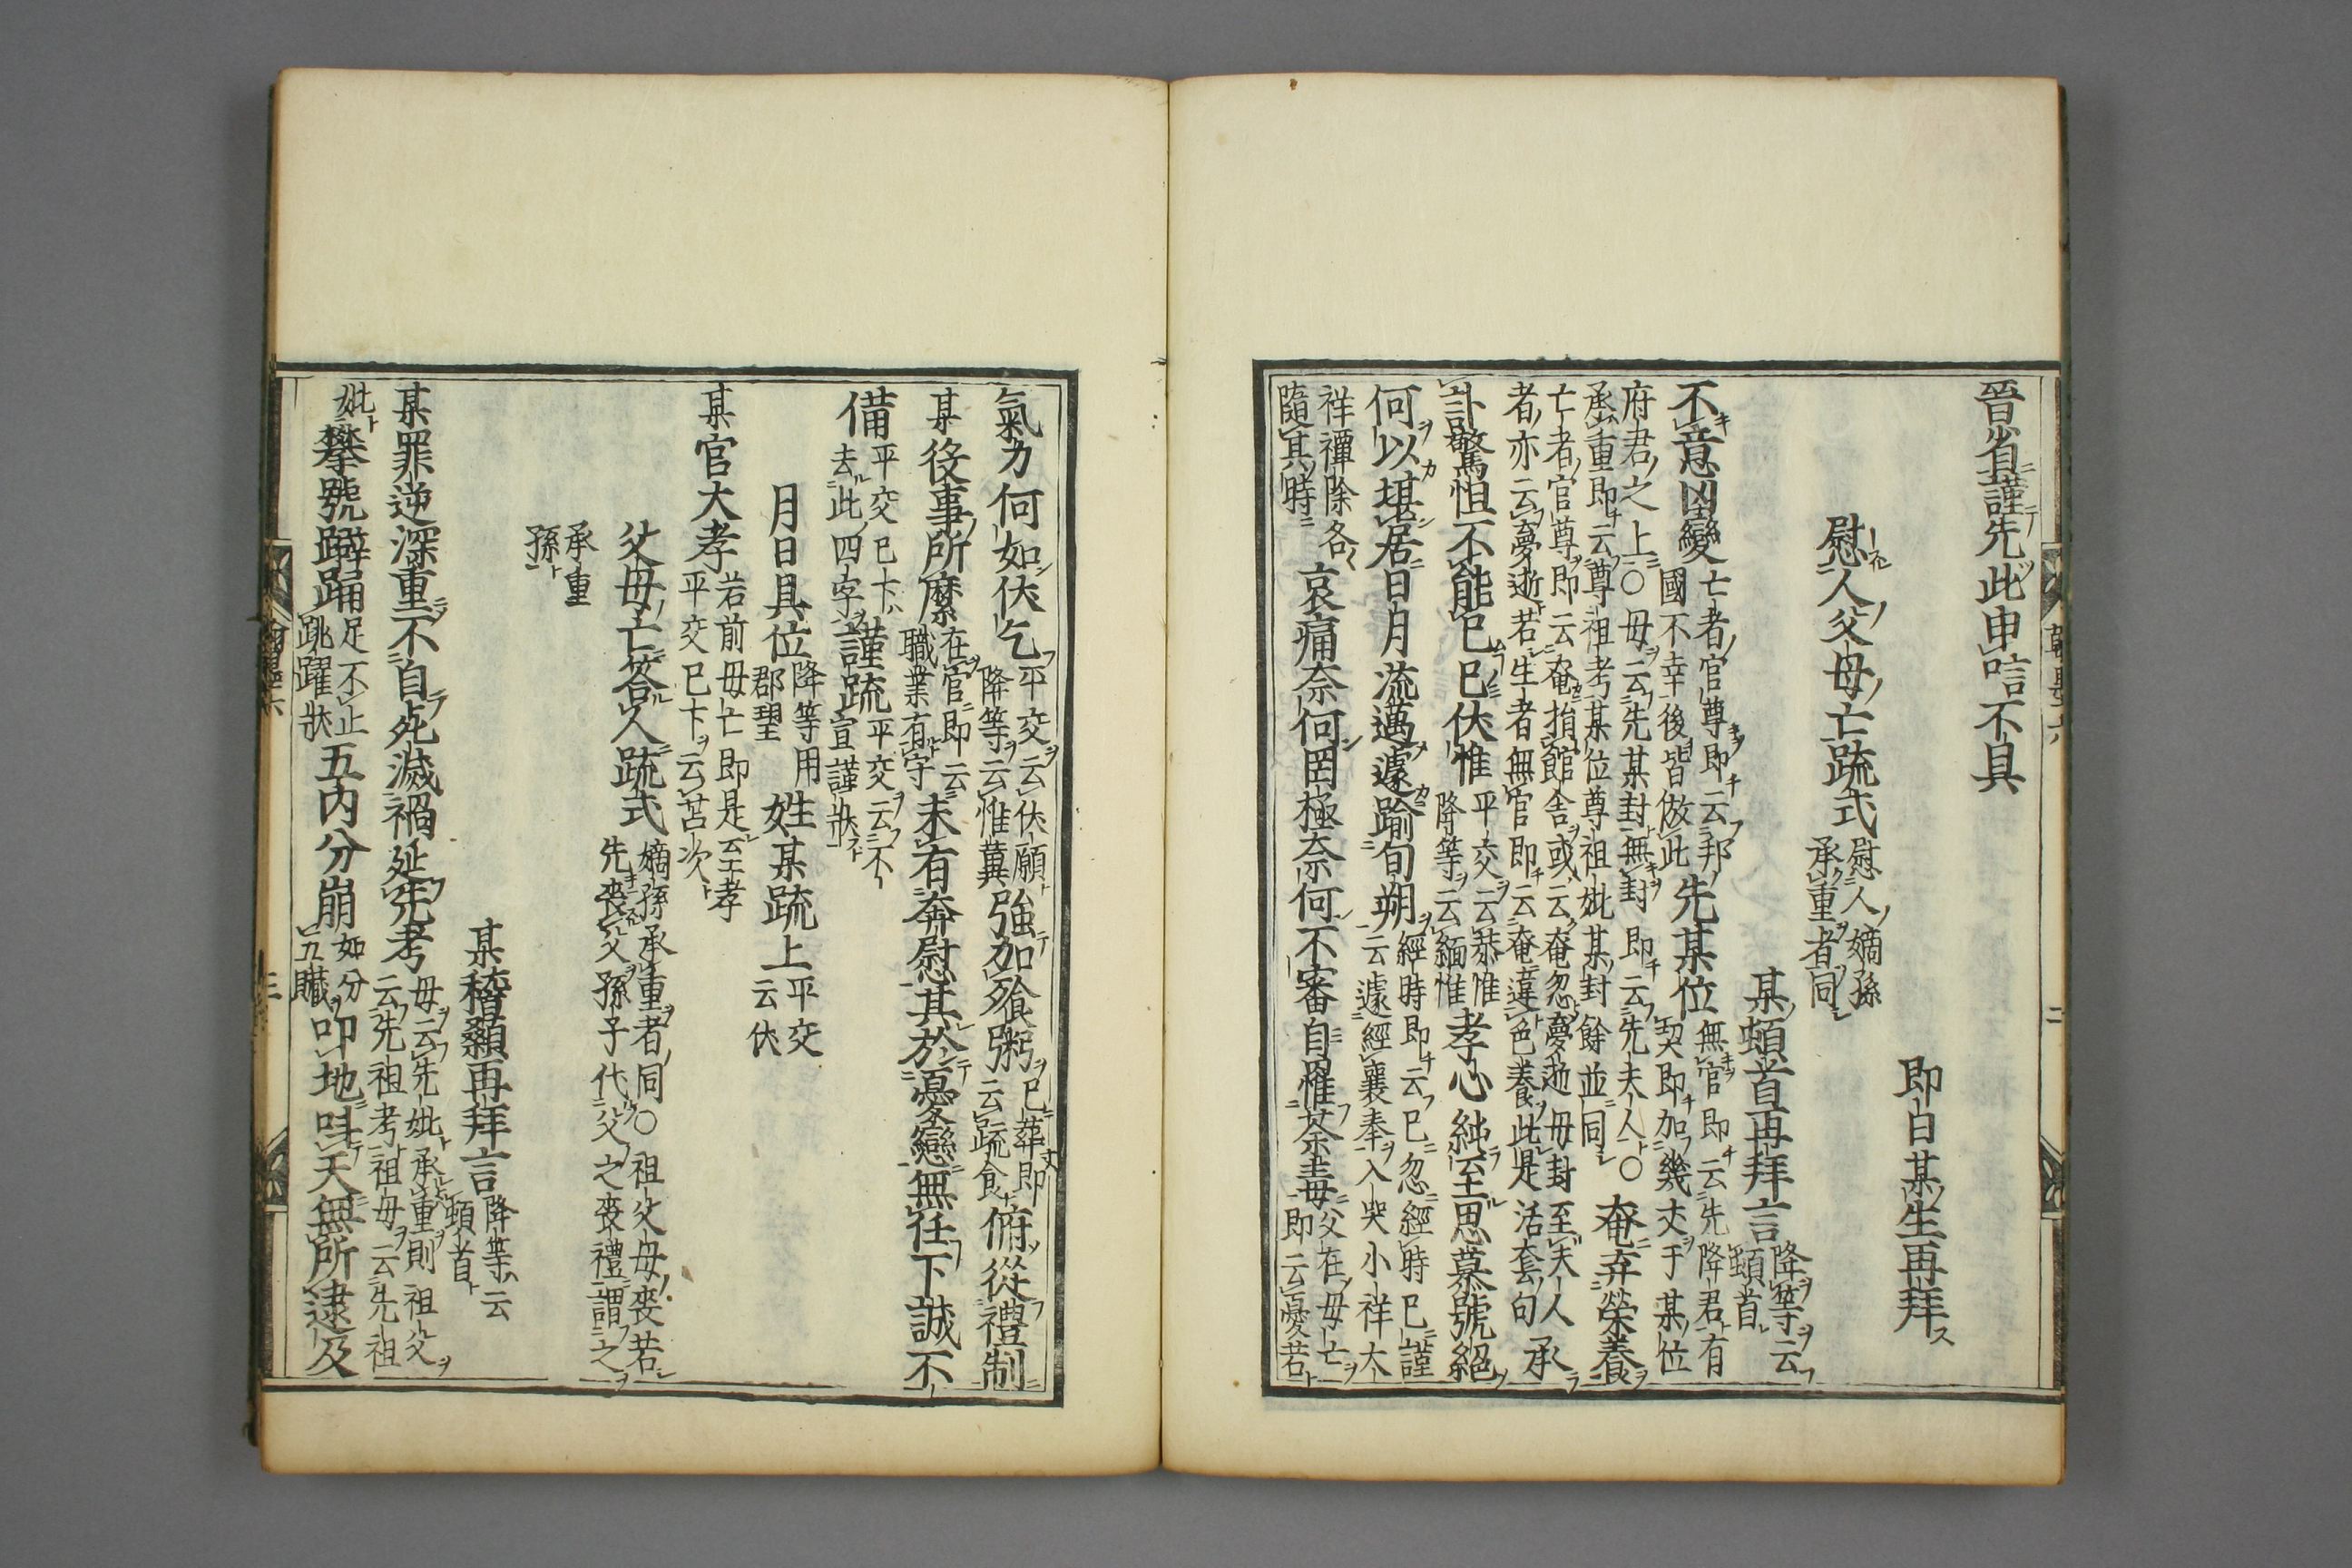 晉省謹先此申唁不具
即日某生再拜
慰人父母亡疏式 慰人嫡孫承重者同
某頓首再拜言 降等云頓首
不意凶變 亡者官尊即云邦國不幸後皆倣此 先某位 無官即云先府君有契即加幾丈于某位
府君之上○母云先某封無封即云先夫人○
承重即云尊祖考某位尊祖妣某封餘並同 奄弃榮養
亡者官尊即云奄捐館舍或云奄忽夢逝母封至夫人 承
者亦云夢逝若生者無官即云奄違色養此是活套句
訃驚怛不能已已伏惟 平交云恭惟降等云緬惟 孝心純至思慕號絕
何以堪居日月流邁遽踰旬朔 經時即云已忽經時已謹云遽經襄奉入哭小祥大
祥禫除各隨其時 哀痛奈何罔極奈何不審自罹荼毒 父在母亡即云憂若
氣力何如伏乞 平交云伏願降等云惟冀 強加飱粥 已葬即云疏食 俯從禮制
某役事所縻 在官即云職業有守 未有奔慰其於憂戀無任下誠不
備 平交已下去此四字 謹疏 平交云不宣謹狀
月日具位 降等用郡望 姓某疏上 平交云伏
某官大孝 若前母亡即是云至孝平交已下云苫次
父母亡答人疏式 嫡孫承重者同○祖父母喪若先喪父孫子代父之喪禮謂之
承重孫
某稽顙再拜言 降等云頓首
某罪逆深重不自死滅禍延先考 母云先妣承重則祖父云先祖考祖母云先祖
妣 攀號躃踊 足不止跳躍狀 五內分崩 如分五臟 叩地叫天無所逮及